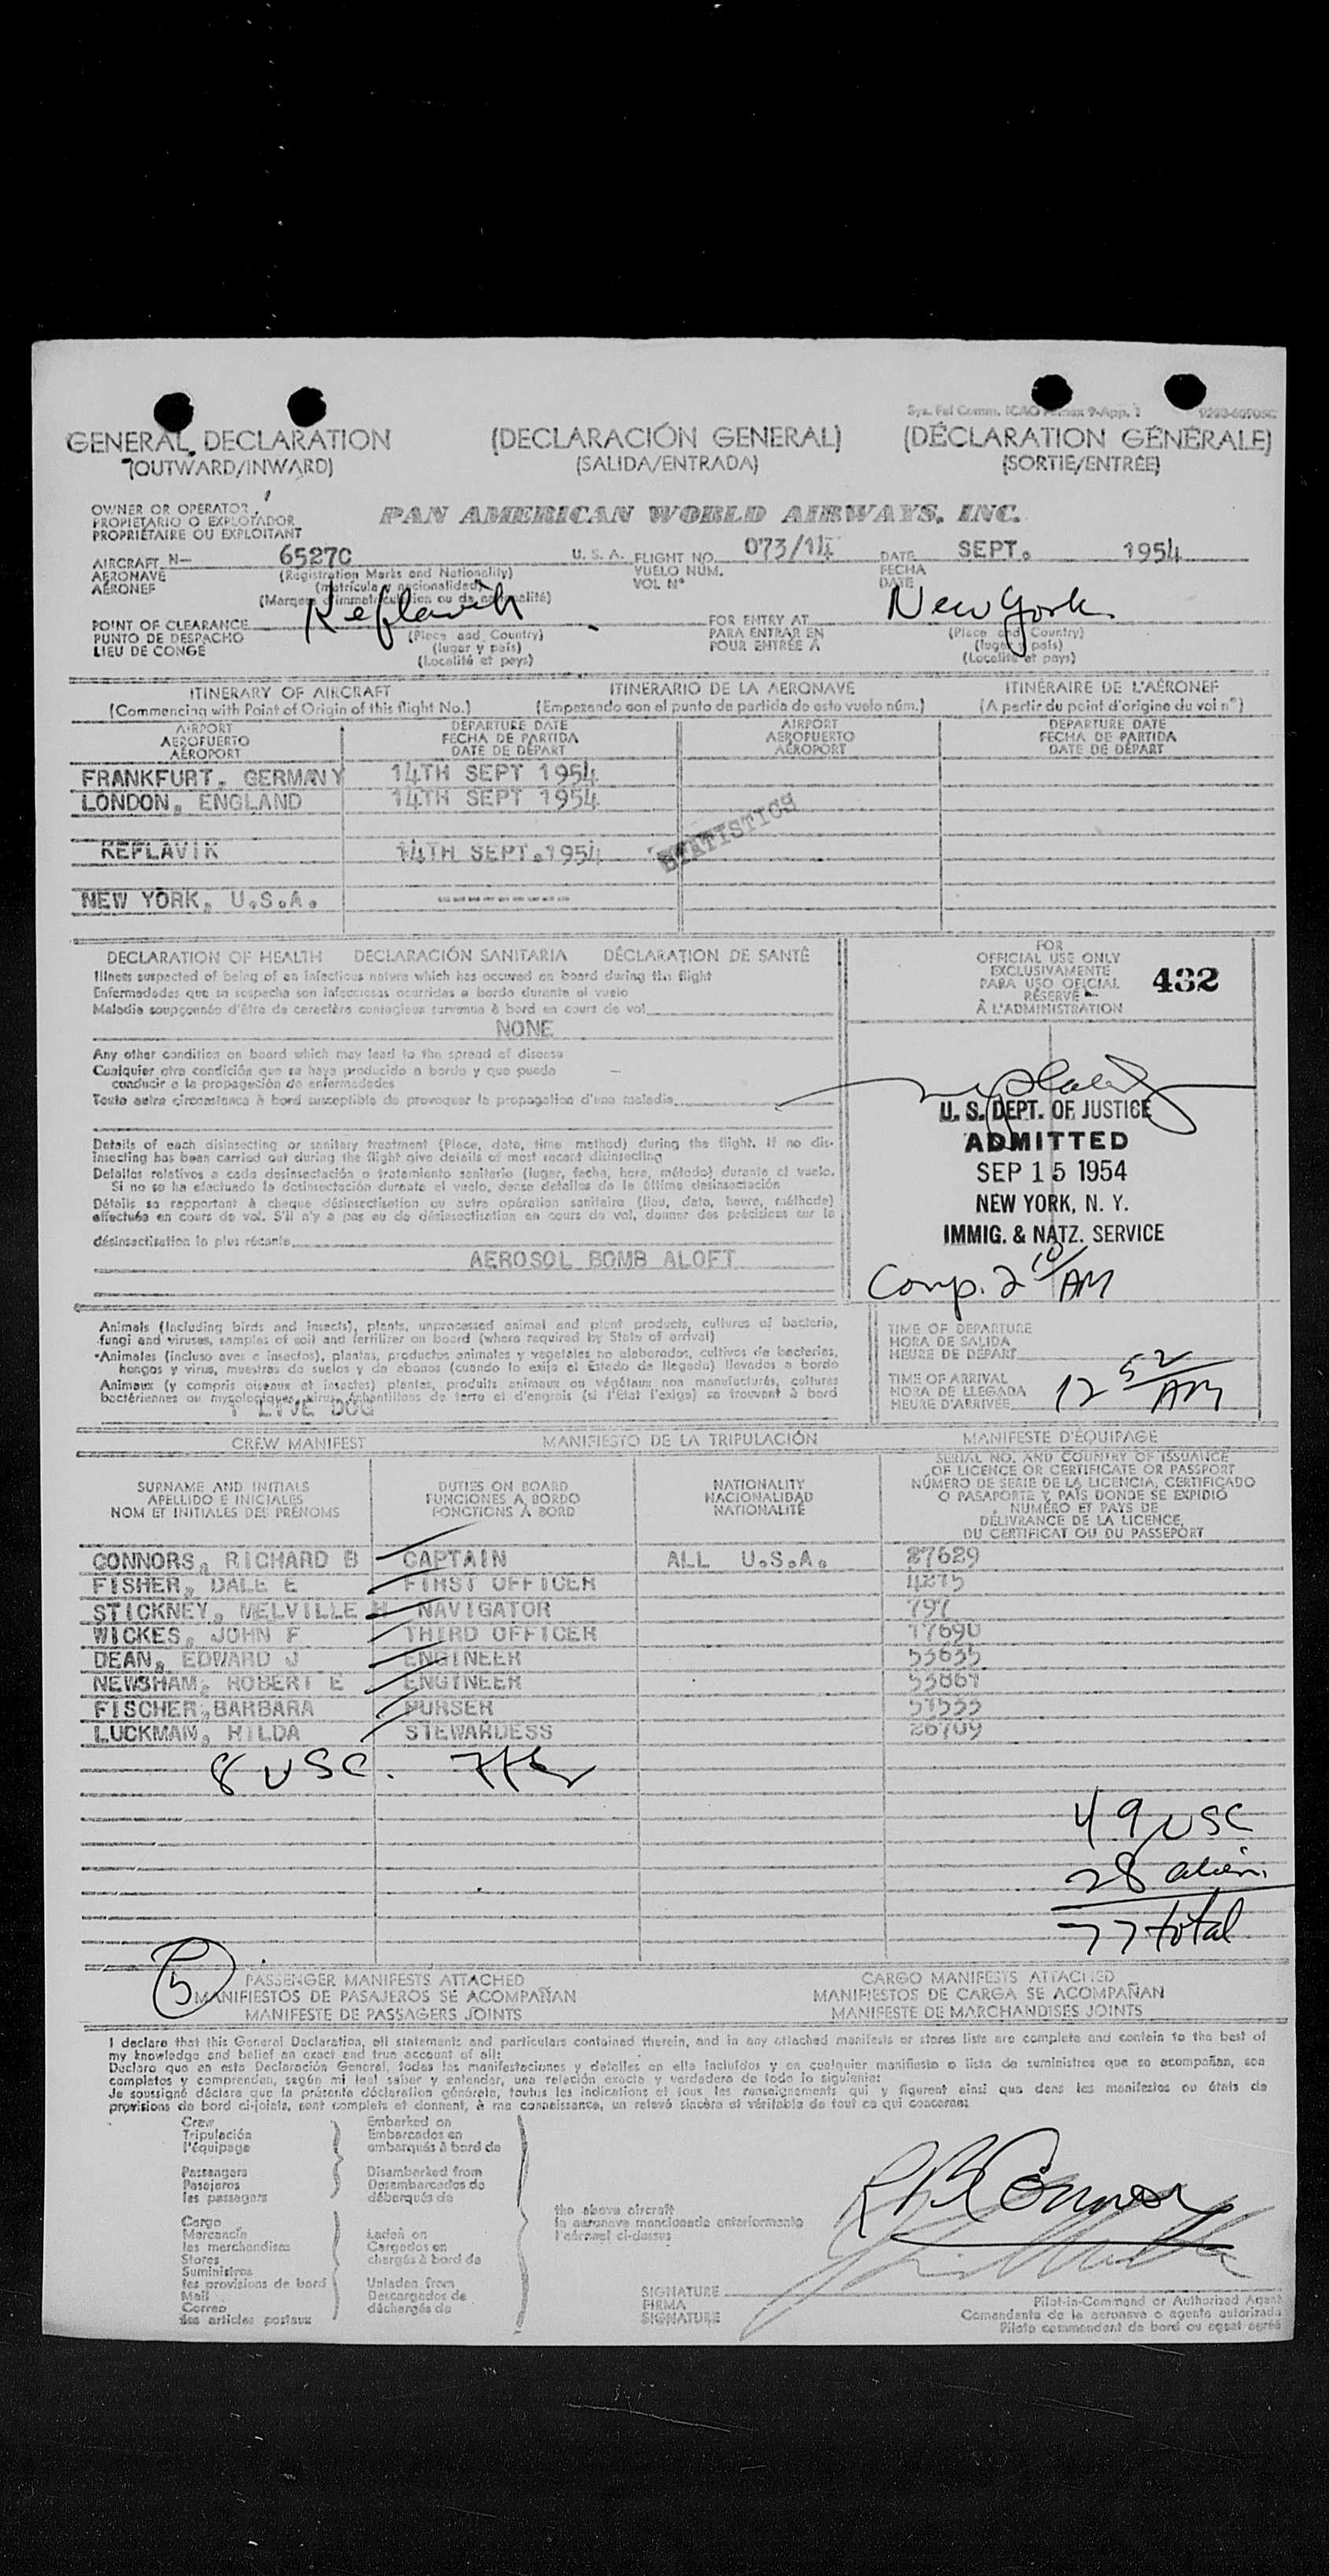 Sys. Fel Comm. ICAO Annex 9-App. 1
GENERAL DECLARATION (DECLARACIÓN GENERAL) (DÉCLARATION GÉNÉRALE)
(OUTWARD/INWARD) (SALIDA/ENTRADA) (SORTIE/ENTRÉE)
OWNER OR OPERATOR
PROPIETARIO O EXPLOTADOR
PROPRIÉTAIRE OU EXPLOITANT
PAN AMERICAN WORLD AIRWAYS, INC.
AIRCRAFT N- 6527C U. S. A. FLIGHT NO. 073/14 DATE SEPT. 1954
AERONAVE (Registration Marks and Nationality) VUELO NÚM. FECHA
AÉRONEF (matrícula y nacionalidad) VOL N° DATE
(Marques d'immatriculation ou de nationalité)
POINT OF CLEARANCE Keflavik FOR ENTRY AT New York
PUNTO DE DESPACHO (Place and Country) PARA ENTRAR EN (Place and Country)
LIEU DE CONGÉ (lugar y país) POUR ENTRÉE À (lugar y país)
(Localité et pays) (Localité et pays)
ITINERARY OF AIRCRAFT ITINERARIO DE LA AERONAVE ITINÉRAIRE DE L'AÉRONEF
(Commencing with Point of Origin of this flight No.) (Empezando con el punto de partida de este vuelo núm.) (A partir du point d'origine du vol n°)
AIRPORT DEPARTURE DATE AIRPORT DEPARTURE DATE
AEROPUERTO FECHA DE PARTIDA AEROPUERTO FECHA DE PARTIDA
AÉROPORT DATE DE DÉPART AÉROPORT DATE DE DÉPART
FRANKFURT, GERMANY 14TH SEPT 1954
LONDON, ENGLAND 14TH SEPT 1954
STATISTICS
KEFLAVIK 14TH SEPT.1954
NEW YORK, U.S.A. -----------
DECLARATION OF HEALTH DECLARACIÓN SANITARIA DÉCLARATION DE SANTÉ
Illness suspected of being of an infectious nature which has occured on board during the flight
Enfermedades que se sospecha son infecciosas ocurridas a bordo durante el vuelo
Maladie soupçonnée d'être de caractère contagieux survenue à bord en cours de vol
NONE
Any other condition on board which may lead to the spread of disease
Cualquier otra condición que se haya producido a bordo y que pueda
conducir a la propagación de enfermedades
Toute autre circonstance à bord susceptible de provoquer la propagation d'une maladie
Details of each disinsecting or sanitary treatment (Place, date, time method) during the flight. If no dis-
insecting has been carried out during the flight give details of most recent disinsecting
Detalles relativos a cada desinsectación o tratamiento sanitario (lugar, fecha, hora, método) durante el vuelo.
Si no se ha efectuado la desinsectación durante el vuelo, dense detalles de la última desinsectación
Détails se rapportant à chaque désinsectisation ou autre opération sanitaire (lieu, date, heure, méthode)
effectuée en cours de vol. S'il n'y a pas eu de désinsectisation en cours du vol, donner des précisions sur la
désinsectisation la plus récente
AEROSOL BOMB ALOFT
FOR
OFFICIAL USE ONLY
EXCLUSIVAMENTE
PARA USO OFICIAL
RÉSERVÉ
À L'ADMINISTRATION
432
U. S. DEPT. OF JUSTICE
ADMITTED
SEP 15 1954
NEW YORK, N. Y.
IMMIG. & NATZ. SERVICE
Comp. 2 10/AM
Animals (Including birds and insects), plants, unprocessed animal and plant products, cultures of bacteria,
fungi and viruses, samples of soil and fertilizer on board (where required by State of arrival)
Animales (incluso aves e insectos), plantas, productos animales y vegetales no elaborados, cultivos de bacterias,
hongos y virus, muestras de suelos y de abonos (cuando lo exija el Estado de llegada) llevados a bordo
Animaux (y compris oiseaux et insectes) plantes, produits animaux ou végétaux non manufacturés, cultures
bactériennes ou mycologiques, virus, échantillons de terre et d'engrais (si l'Etat l'exige) se trouvant à bord
1 LIVE DOG
TIME OF DEPARTURE
HORA DE SALIDA
HEURE DE DÉPART
TIME OF ARRIVAL
HORA DE LLEGADA
HEURE D'ARRIVÉE
12 52/AM
CREW MANIFEST MANIFIESTO DE LA TRIPULACIÓN MANIFESTE D'ÉQUIPAGE
SURNAME AND INITIALS
APELLIDO E INICIALES
NOM ET INITIALES DES PRÉNOMS
DUTIES ON BOARD
FUNCIONES A BORDO
FONCTIONS À BORD
NATIONALITY
NACIONALIDAD
NATIONALITÉ
SERIAL NO. AND COUNTRY OF ISSUANCE
OF LICENCE OR CERTIFICATE OR PASSPORT
NÚMERO DE SERIE DE LA LICENCIA, CERTIFICADO
O PASAPORTE Y PAÍS DONDE SE EXPIDIÓ
NUMÉRO ET PAYS DE
DÉLIVRANCE DE LA LICENCE,
DU CERTIFICAT OU DU PASSEPORT
CONNORS, RICHARD B CAPTAIN ALL U.S.A. 27629
FISHER, DALE E FIRST OFFICER 4275
STICKNEY, MELVILLE H NAVIGATOR 797
WICKES, JOHN F THIRD OFFICER 17690
DEAN, EDWARD J ENGINEER 53635
NEWSHAM, ROBERT E ENGINEER 53861
FISCHER, BARBARA PURSER 51555
LUCKMAN, HILDA STEWARDESS 26709
8 USC.
49 USC
28 alien
77 total
5
PASSENGER MANIFESTS ATTACHED CARGO MANIFESTS ATTACHED
MANIFIESTOS DE PASAJEROS SE ACOMPAÑAN MANIFIESTOS DE CARGA SE ACOMPAÑAN
MANIFESTE DE PASSAGERS JOINTS MANIFESTE DE MARCHANDISES JOINTS
I declare that this General Declaration, all statements and particulars contained therein, and in any attached manifests or stores lists are complete and contain to the best of
my knowledge and belief an exact and true account of all:
Declaro que en esta Declaración General, todas las manifestaciones y detalles en ella incluídos y en cualquier manifiesto o lista de suministros que se acompañan, son
completos y comprenden, según mi leal saber y entender, una relación exacta y verdadera de todo lo siguiente:
Je soussigné déclare que la présente déclaration générale, toutes les indications et tous les renseignements qui y figurent ainsi que dans les manifestes ou états de
provisions de bord ci-joints, sont complets et donnent, à ma connaissance, un relevé sincère et véritable de tout ce qui concerne:
Crew
Tripulación
l'équipage
Passengers
Pasajeros
les passagers
Cargo
Mercancía
les marchandises
Stores
Suministros
les provisions de bord
Mail
Correo
les articles postaux
Embarked on
Embarcados en
embarqués à bord de
Disembarked from
Desembarcados de
débarqués de
Laden on
Cargados en
chargés à bord de
Unladen from
Descargados de
déchargés de
the above aircraft
la aeronave mencionada anteriormente
l'aéronef ci-dessus
R B Connors
SIGNATURE
FIRMA
SIGNATURE
Pilot-in-Command or Authorized Agent
Comandante de la aeronave o agente autorizado
Pilote commandant de bord ou agent agréé